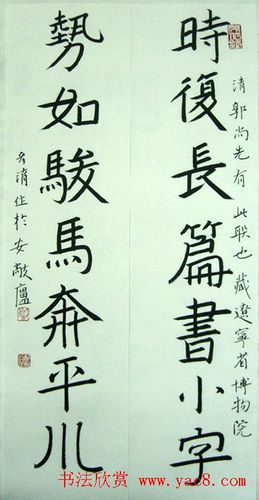 清郭尚先有此联也藏遼寧省博物院
時復長篇書小字
勢如駿馬奔平川
於安廬
书法欣赏
www.yac8.com